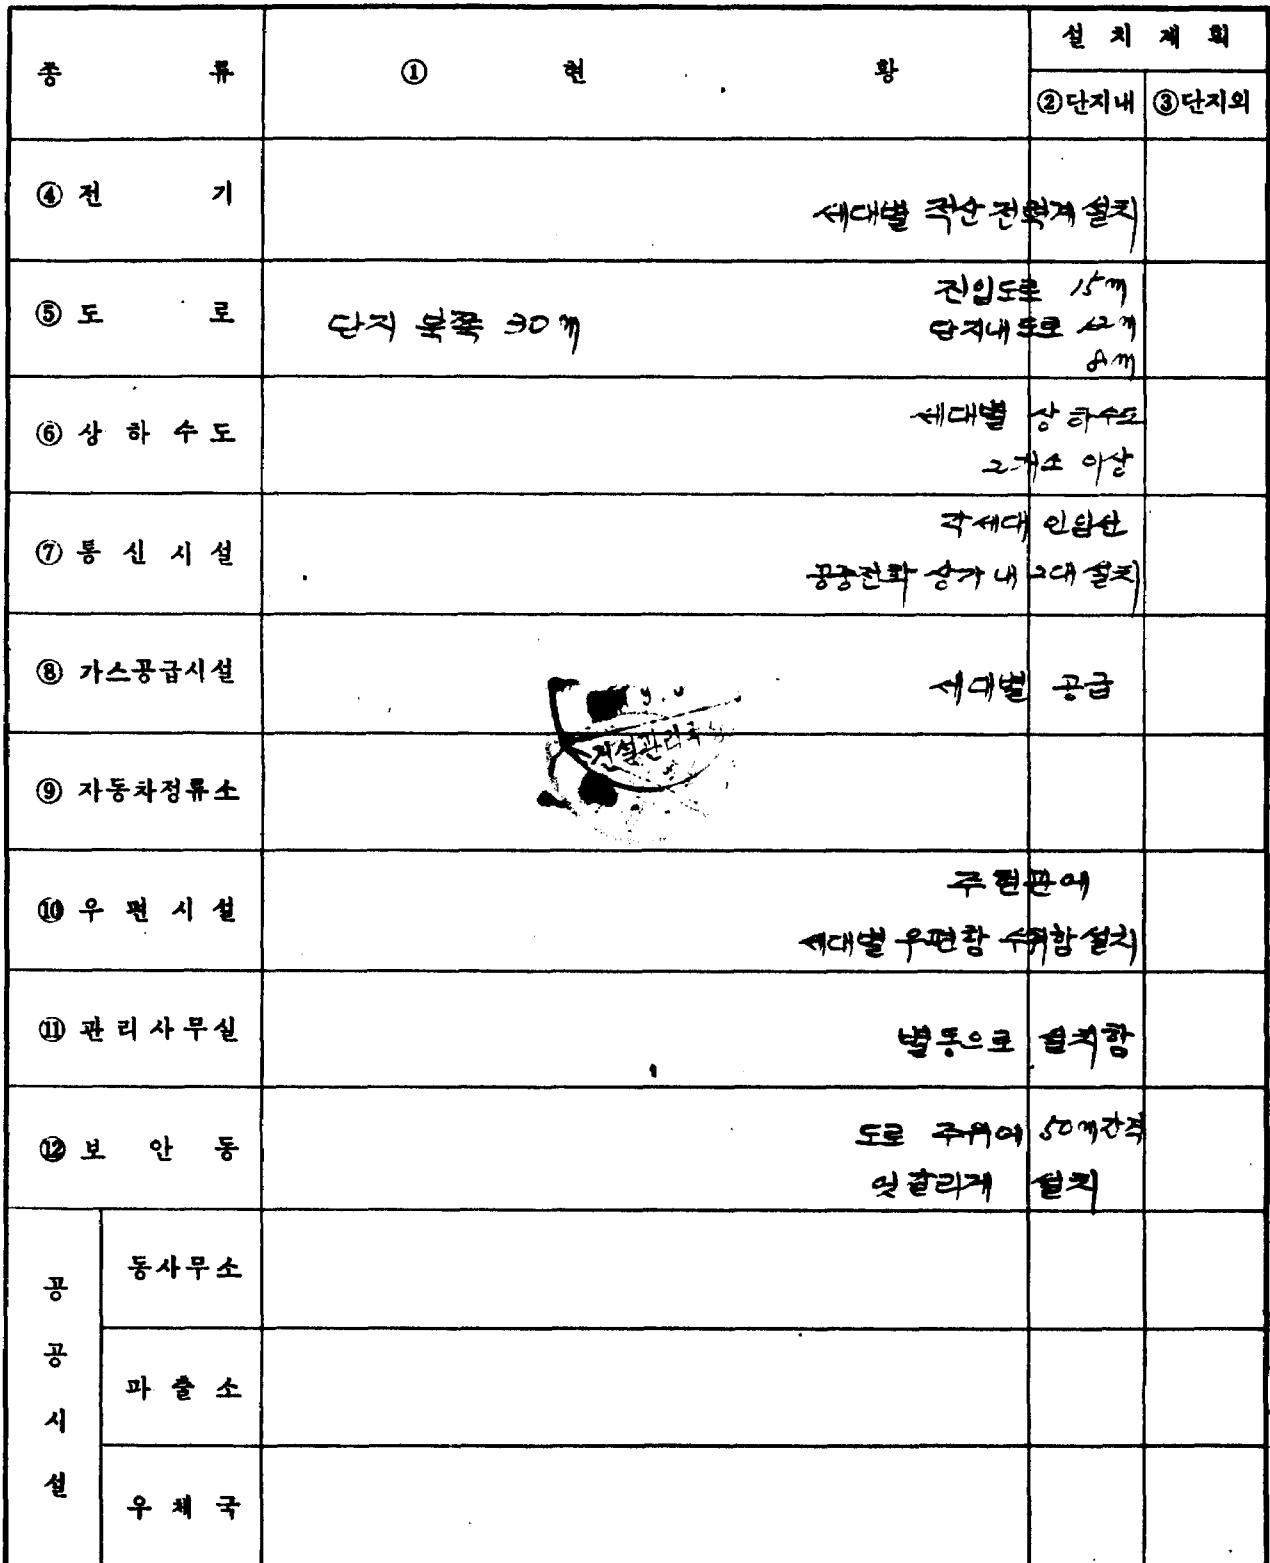 설 치 계 획
종 류 ① 현 황
②단지내 ③단지외
④ 전 기
세대별 적산 전력계 설치
⑤ 도 로
단지 북쪽 30m
진입도로 15m
단지내 도로 12m
8m
⑥ 상 하 수 도
세대별 상 하수도
2개소 이상
⑦ 통 신 시 설
각세대 인입선
공중전화 상가 내 2대 설치
⑧ 가스공급시설
세대별 공급
건설관리국
⑨ 자동차정류소
⑩ 우 편 시 설
주 현관에
세대별 우편함 수취함 설치
⑪ 관 리 사 무 실
별동으로 설치함
⑫ 보 안 등
도로 주위에 50m간격
엇갈리게 설치
공 공 시 설
동사무소
파 출 소
우 체 국